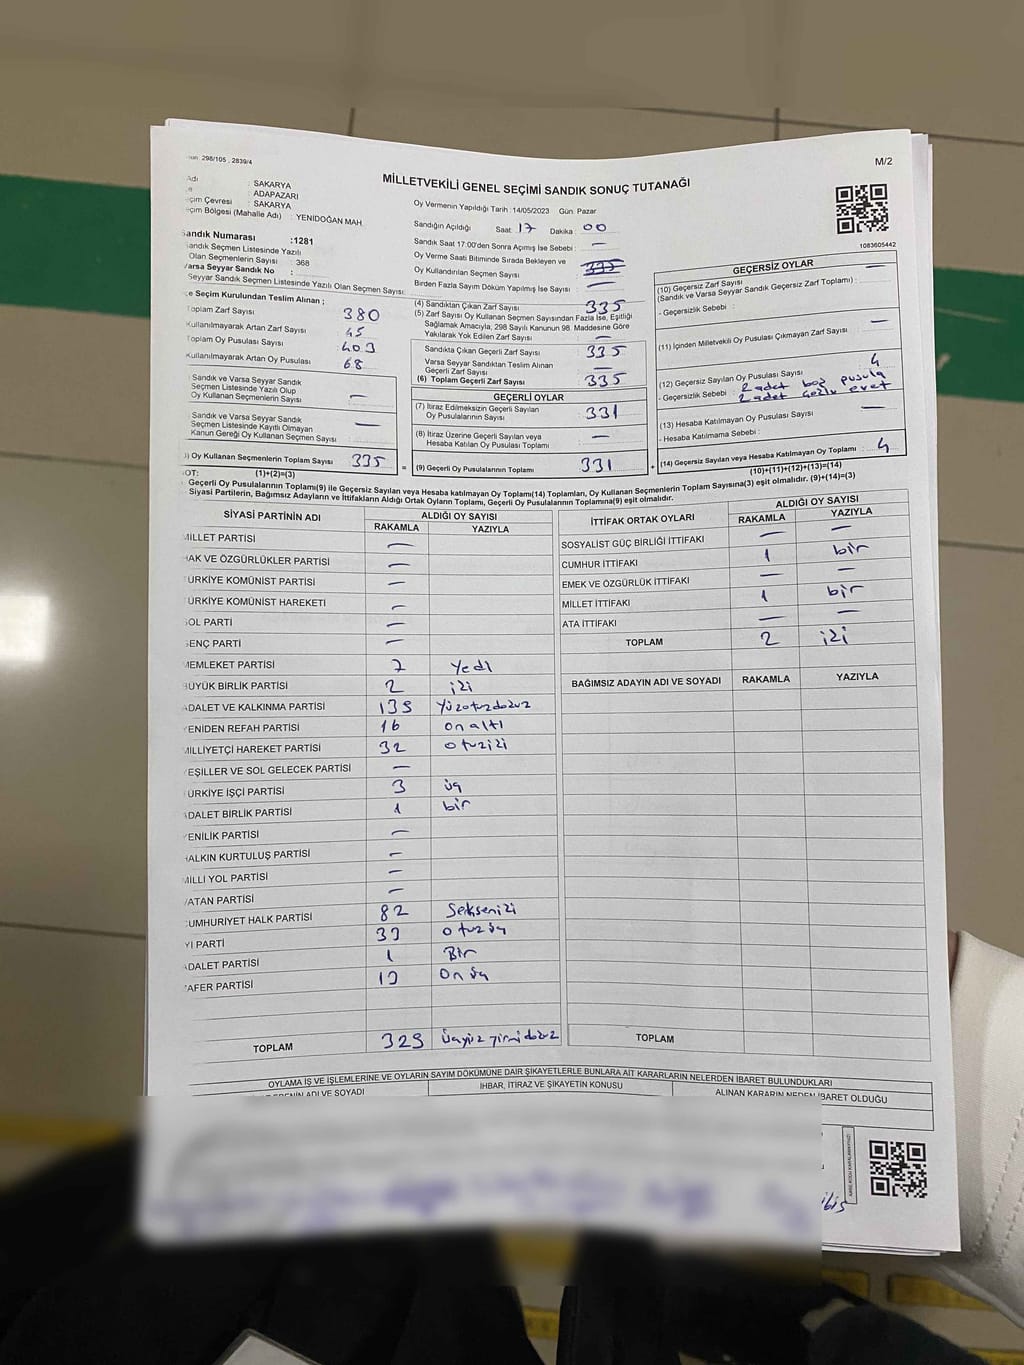 298/105 , 2839/4
M/2
MİLLETVEKİLİ GENEL SEÇİMİ SANDIK SONUÇ TUTANAĞI
Adı : SAKARYA
: ADAPAZARI
çim Çevresi : SAKARYA
çim Bölgesi (Mahalle Adı) : YENİDOĞAN MAH.
Oy Vermenin Yapıldığı Tarih :14/05/2023 Gün: Pazar
Sandığın Açıldığı Saat 17 Dakika 00
Sandık Saat 17.00'den Sonra Açımış İse Sebebi : —
Oy Verme Saati Bitiminde Sırada Bekleyen ve
Oy Kullandırılan Seçmen Sayısı : 335
Birden Fazla Sayım Döküm Yapılmış İse Sayısı : —
1083605442
andık Numarası :1281
andık Seçmen Listesinde Yazılı
Olan Seçmenlerin Sayısı : 368
Varsa Seyyar Sandık No :
Seyyar Sandık Seçmen Listesinde Yazılı Olan Seçmen Sayısı:
e Seçim Kurulundan Teslim Alınan ;
oplam Zarf Sayısı : 380
ullanılmayarak Artan Zarf Sayısı : 45
oplam Oy Pusulası Sayısı : 403
ullanılmayarak Artan Oy Pusulası : 68
Sandık ve Varsa Seyyar Sandık
Seçmen Listesinde Yazılı Olup
Oy Kullanan Seçmenlerin Sayısı : —
Sandık ve Varsa Seyyar Sandık
Seçmen Listesinde Kayıtlı Olmayan
Kanun Gereği Oy Kullanan Seçmen Sayısı : —
) Oy Kullanan Seçmenlerin Toplam Sayısı 335 =
(4) Sandıktan Çıkan Zarf Sayısı : 335
(5) Zarf Sayısı Oy Kullanan Seçmen Sayısından Fazla İse, Eşitliği
Sağlamak Amacıyla, 298 Sayılı Kanunun 98. Maddesine Göre
Yakılarak Yok Edilen Zarf Sayısı : —
Sandıkta Çıkan Geçerli Zarf Sayısı : 335
Varsa Seyyar Sandıktan Teslim Alınan
Geçerli Zarf Sayısı : —
(6) Toplam Geçerli Zarf Sayısı : 335
GEÇERLİ OYLAR
(7) İtiraz Edilmeksizin Geçerli Sayılan
Oy Pusulalarının Sayısı : 331
(8) İtiraz Üzerine Geçerli Sayılan veya
Hesaba Katılan Oy Pusulası Toplamı : —
(9) Geçerli Oy Pusulalarının Toplamı : 331 +
GEÇERSİZ OYLAR
(10) Geçersiz Zarf Sayısı
(Sandık ve Varsa Seyyar Sandık Geçersiz Zarf Toplamı) : —
- Geçersizlik Sebebi :
(11) İçinden Milletvekili Oy Pusulası Çıkmayan Zarf Sayısı : —
(12) Geçersiz Sayılan Oy Pusulası Sayısı : 4
- Geçersizlik Sebebi : 2 adet boş pusula
2 adet evet
(13) Hesaba Katılmayan Oy Pusulası Sayısı : —
- Hesaba Katılmama Sebebi :
(14) Geçersiz Sayılan veya Hesaba Katılmayan Oy Toplamı : 4
OT: (1)+(2)=(3)
(10)+(11)+(12)+(13)=(14)
Geçerli Oy Pusulalarının Toplamı(9) ile Geçersiz Sayılan veya Hesaba katılmayan Oy Toplamı(14) Toplamları, Oy Kullanan Seçmenlerin Toplam Sayısına(3) eşit olmalıdır. (9)+(14)=(3)
Siyasi Partilerin, Bağımsız Adayların ve İttifakların Aldığı Ortak Oyların Toplamı, Geçerli Oy Pusulalarının Toplamına(9) eşit olmalıdır.
SİYASİ PARTİNİN ADI ALDIĞI OY SAYISI
RAKAMLA YAZIYLA
MİLLET PARTİSİ —
HAK VE ÖZGÜRLÜKLER PARTİSİ —
ÜRKİYE KOMÜNİST PARTİSİ —
ÜRKİYE KOMÜNİST HAREKETİ —
SOL PARTİ —
GENÇ PARTİ —
MEMLEKET PARTİSİ 7 Yedi
BÜYÜK BİRLİK PARTİSİ 2 iki
ADALET VE KALKINMA PARTİSİ 139 Yüzotuzdokuz
YENİDEN REFAH PARTİSİ 16 onaltı
MİLLİYETÇİ HAREKET PARTİSİ 32 otuziki
YEŞİLLER VE SOL GELECEK PARTİSİ —
ÜRKİYE İŞÇİ PARTİSİ 3 üç
ADALET BİRLİK PARTİSİ 1 bir
YENİLİK PARTİSİ —
HALKIN KURTULUŞ PARTİSİ —
MİLLİ YOL PARTİSİ —
VATAN PARTİSİ —
CUMHURİYET HALK PARTİSİ 82 Sekseniki
Yİ PARTİ 33 otuzüç
ADALET PARTİSİ 1 Bir
ZAFER PARTİSİ 13 Onüç
TOPLAM 329 üçyüz yirmidokuz
İTTİFAK ORTAK OYLARI ALDIĞI OY SAYISI
RAKAMLA YAZIYLA
SOSYALİST GÜÇ BİRLİĞİ İTTİFAKI — —
CUMHUR İTTİFAKI 1 bir
EMEK VE ÖZGÜRLÜK İTTİFAKI — —
MİLLET İTTİFAKI 1 bir
ATA İTTİFAKI — —
TOPLAM 2 iki
BAĞIMSIZ ADAYIN ADI VE SOYADI RAKAMLA YAZIYLA
TOPLAM
OYLAMA İŞ VE İŞLEMLERİNE VE OYLARIN SAYIM DÖKÜMÜNE DAİR ŞİKAYETLERLE BUNLARA AİT KARARLARIN NELERDEN İBARET BULUNDUKLARI
ADI VE SOYADI İHBAR, İTİRAZ VE ŞİKAYETİN KONUSU ALINAN KARARIN NEDEN İBARET OLDUĞU